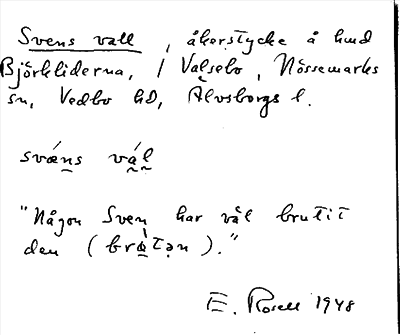 Svens vall, åkerstycke å hmd
Björkliderna, / Valsebo, Nössemarks
sn, Vedbo hd, Älvsborgs l.
svǻn̲s vá̲l̲
"Någon Sven har väl brutit
den (brà̲tən)."
E. Rosell 1948